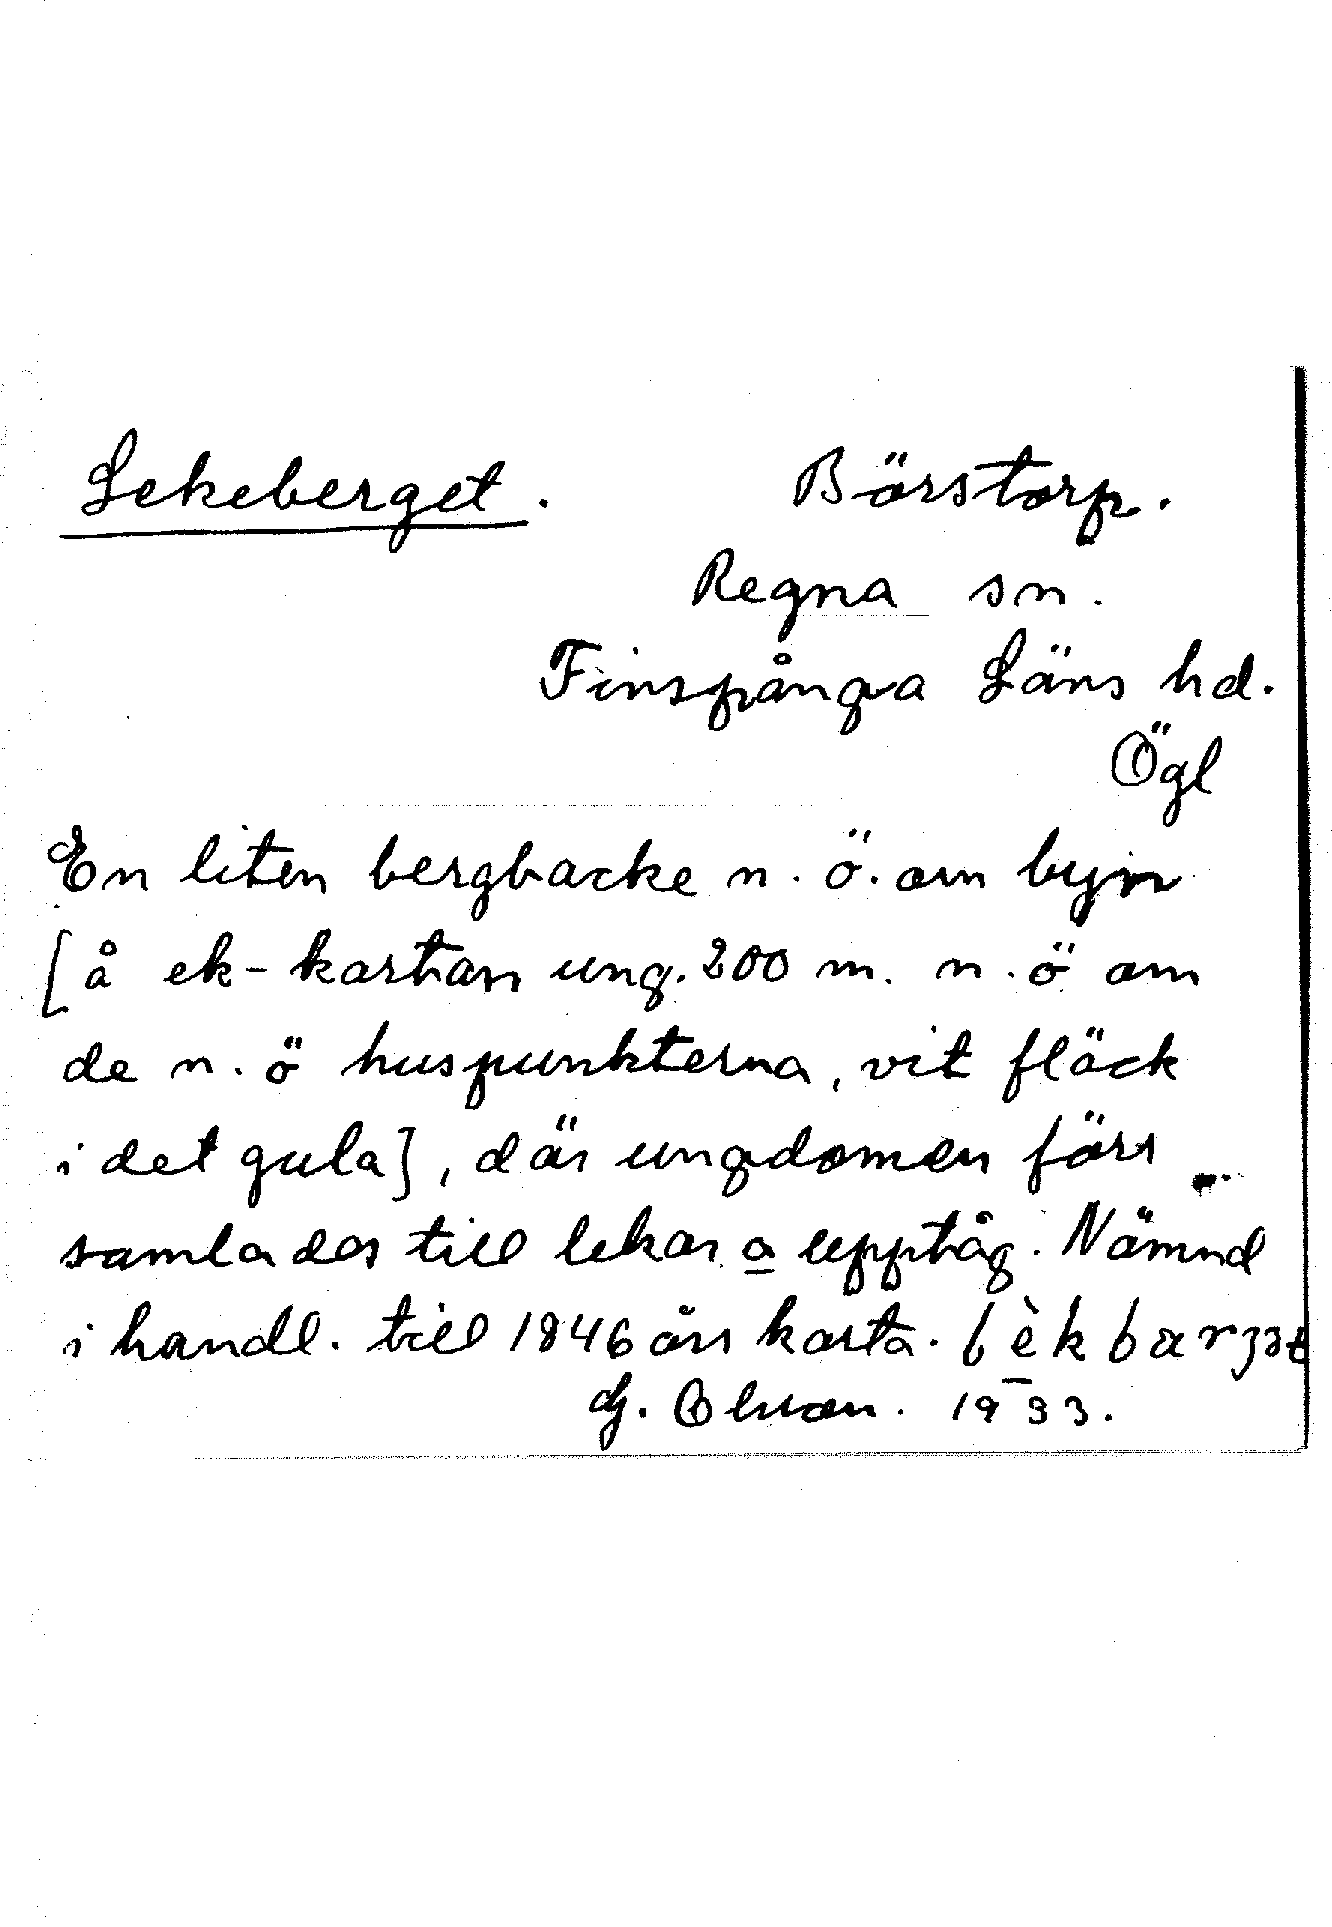 Lekeberget. Börstorp.
Regna sn.
Finspånga Läns hd.
Ögl
En liten bergbacke n. ö. om byn
[å ek-kartan ung. 200 m. n. ö om
de n. ö huspunkterna, vit fläck
i det gula], där ungdomen förr
samlades till lekar o upptåg. Nämnd
i handl. till 1846 års karta.
G. Olsson. 1933.